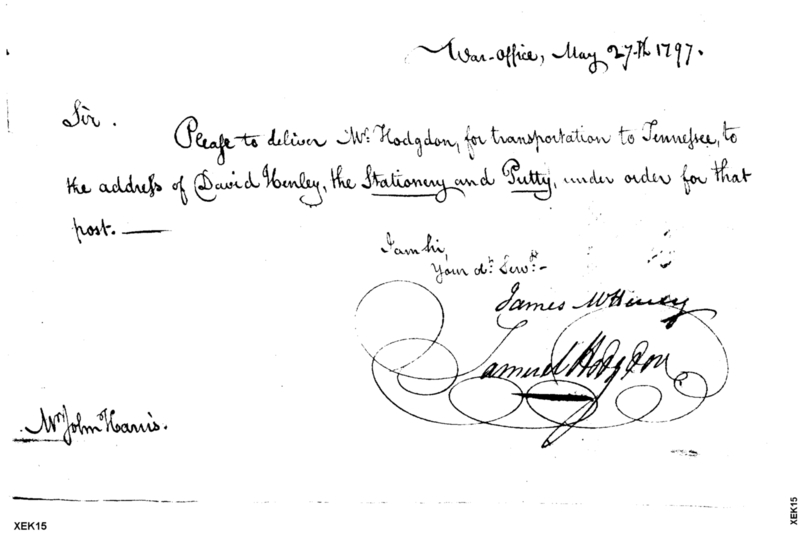 War-Office, May 27th 1797.
Sir.
Please to deliver Mr. Hodgdon, for transportation to Tennessee, to
the address of David Henley, the Stationery and Putty, under order for that
post.
I am Sir,
Your ob. Servt.
James McHenry
Samuel Hodgdon
Mr John Harris.
XEK15
XEK15